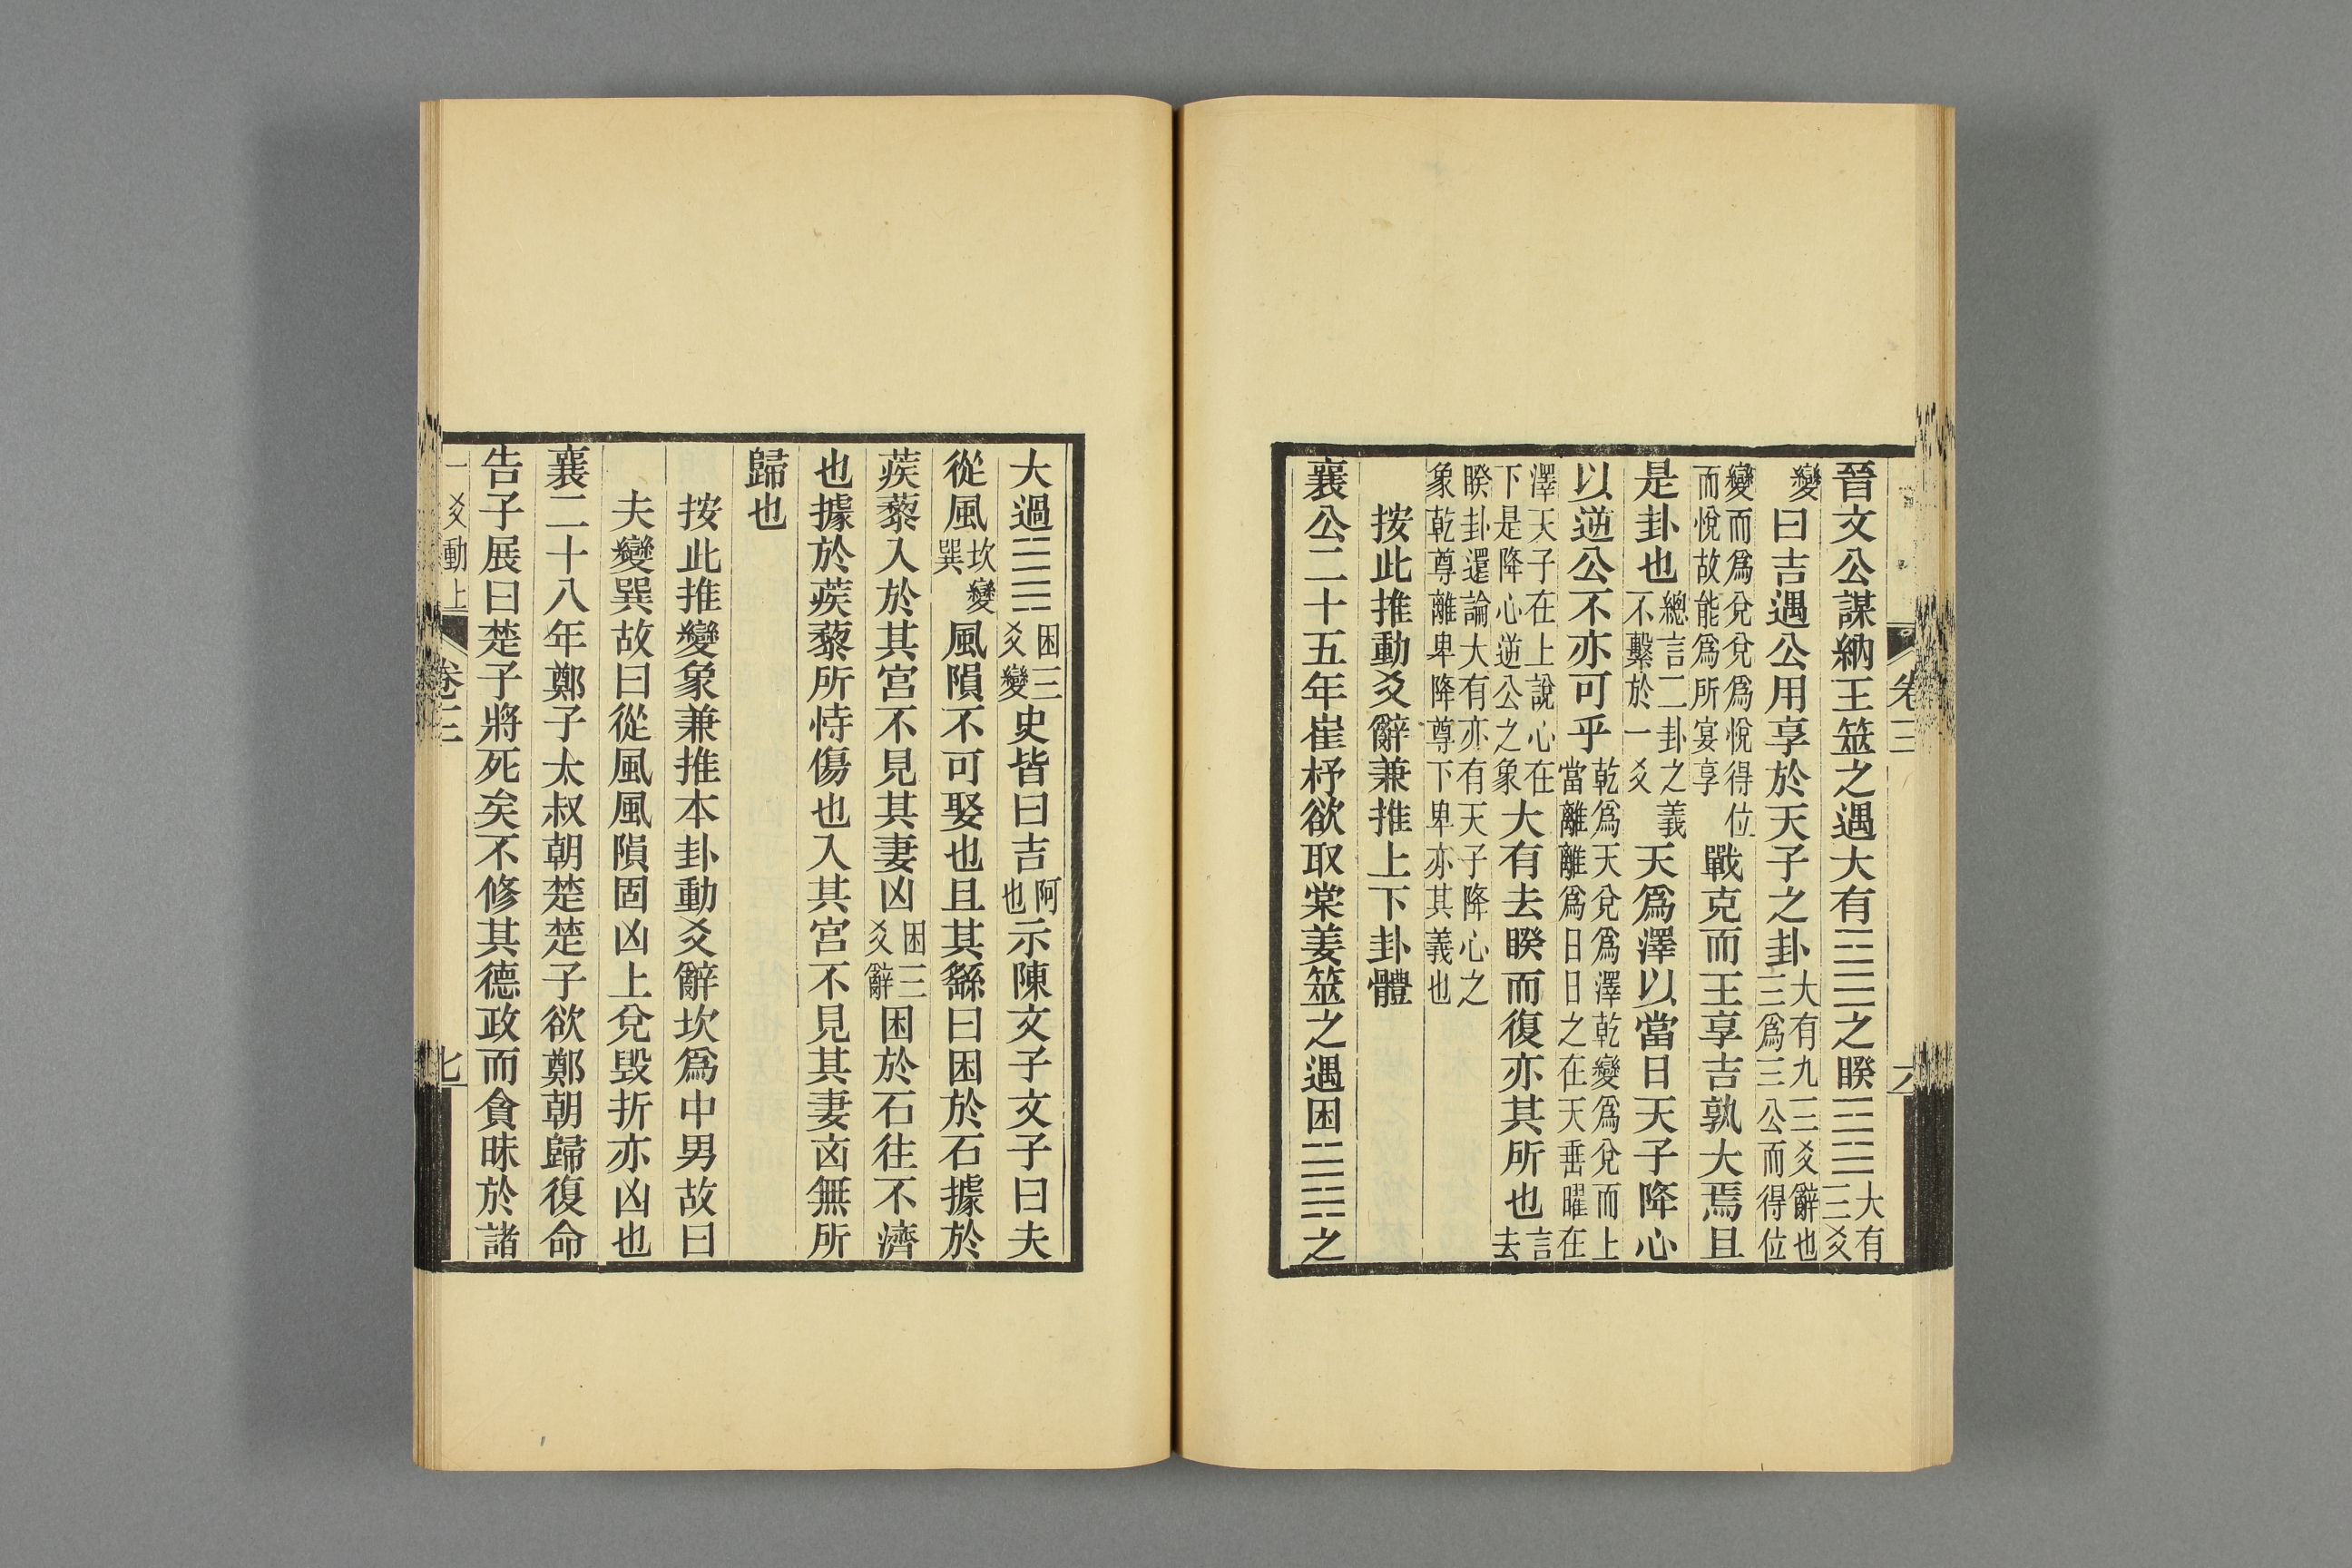 晉文公謀納王筮之遇大有䷍之睽䷥大有三爻
變曰吉遇公用享於天子之卦大有九三爻辭也三爲三公而得位
變而爲兌兌爲悅得位而悅故能爲所宴享戰克而王享吉孰大焉且
是卦也總言二卦之義不繫於一爻天爲澤以當日天子降心
以逆公不亦可乎乾爲天兌爲澤乾變爲兌而上當離離爲日日之在天垂曜在
澤天子在上說心在下是降心逆公之象大有去睽而復亦其所也言去
睽卦還論大有亦有天子降心之象乾尊離卑降尊下卑亦其義也
按此推動爻辭兼推上下卦體
襄公二十五年崔杼欲取棠姜筮之遇困䷮之
大過䷛困三爻變史皆曰吉阿也示陳文子文子曰夫
從風坎變巽風隕不可娶也且其繇曰困於石據於
蒺藜入於其宮不見其妻凶困三爻辭困於石往不濟
也據於蒺藜所恃傷也入其宮不見其妻凶無所
歸也
按此推變象兼推本卦動爻辭坎爲中男故曰
夫變巽故曰從風風隕固凶上兌毀折亦凶也
襄二十八年鄭子太叔朝楚楚子欲鄭朝歸復命
告子展曰楚子將死矣不修其德政而貪昧於諸
一爻動上 卷三 七